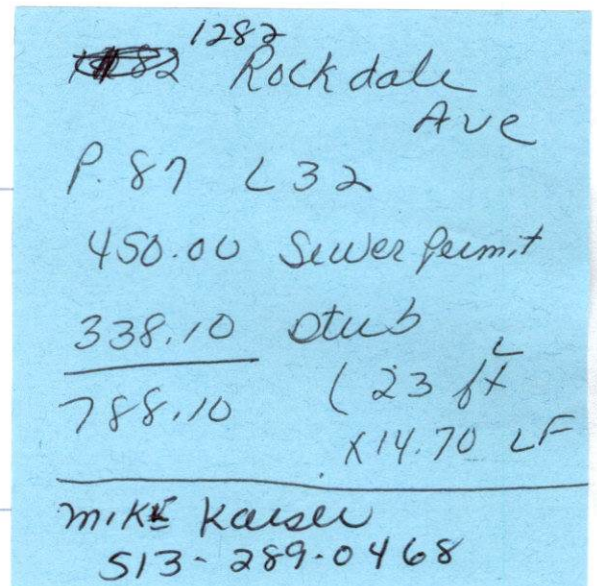 1282 Rockdale
Ave
P. 87 L 32
450.00 Sewer Permit
338.10 Stub
788.10 (23 ft
x14.70 LF
MIKE Kaiser
513-289-0468